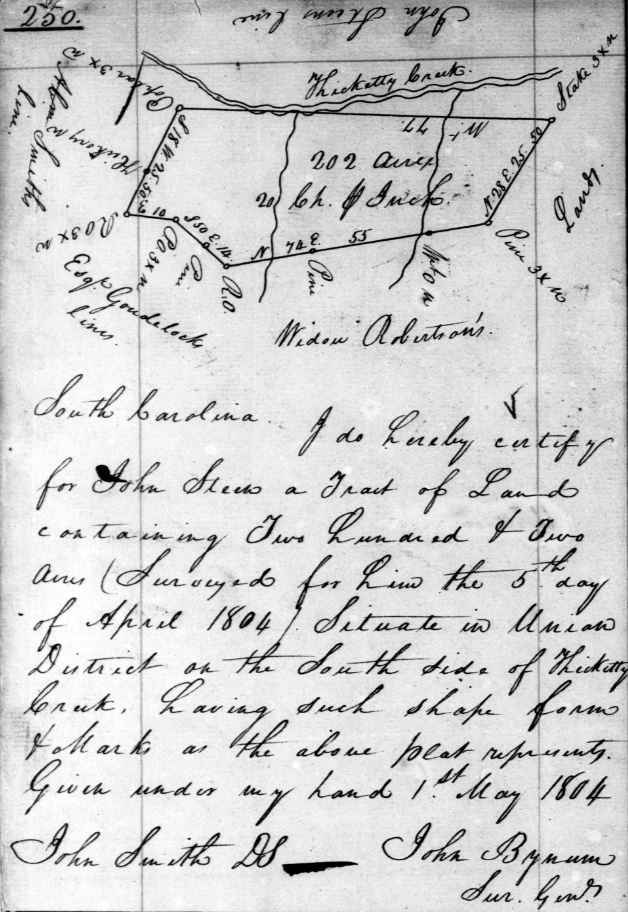 250.
John Steens line
Thicketty Creek.
Stake 3 x N
Poplar 3 x N
Abm Smiths
line.
Hickory N
S 18 W. 25.50
W. 77
202 Acres
20 Ch. P Inch.
N. 28 E. 25. 50
Lands
RO 3 x N
10
PO 3 x N
Pine
S 05
E. 14
R.O.
N 74 E. 55
Pine
W. O N
Pine 3 x N
Esqr. Goudelocks
lines.
Widow Robertson's.
South Carolina.
I do hereby certify
for John Steen a Tract of Land
containing Two Hundred & Two
Acres (Surveyed for him the 5th day
of April 1804) Situate in Union
District on the South side of Thicketty
Creek. Having such shape form
& Marks as the above plat represents.
Given under my hand 1.st May 1804
John Smith DS John Bynum
Sur. Genl.